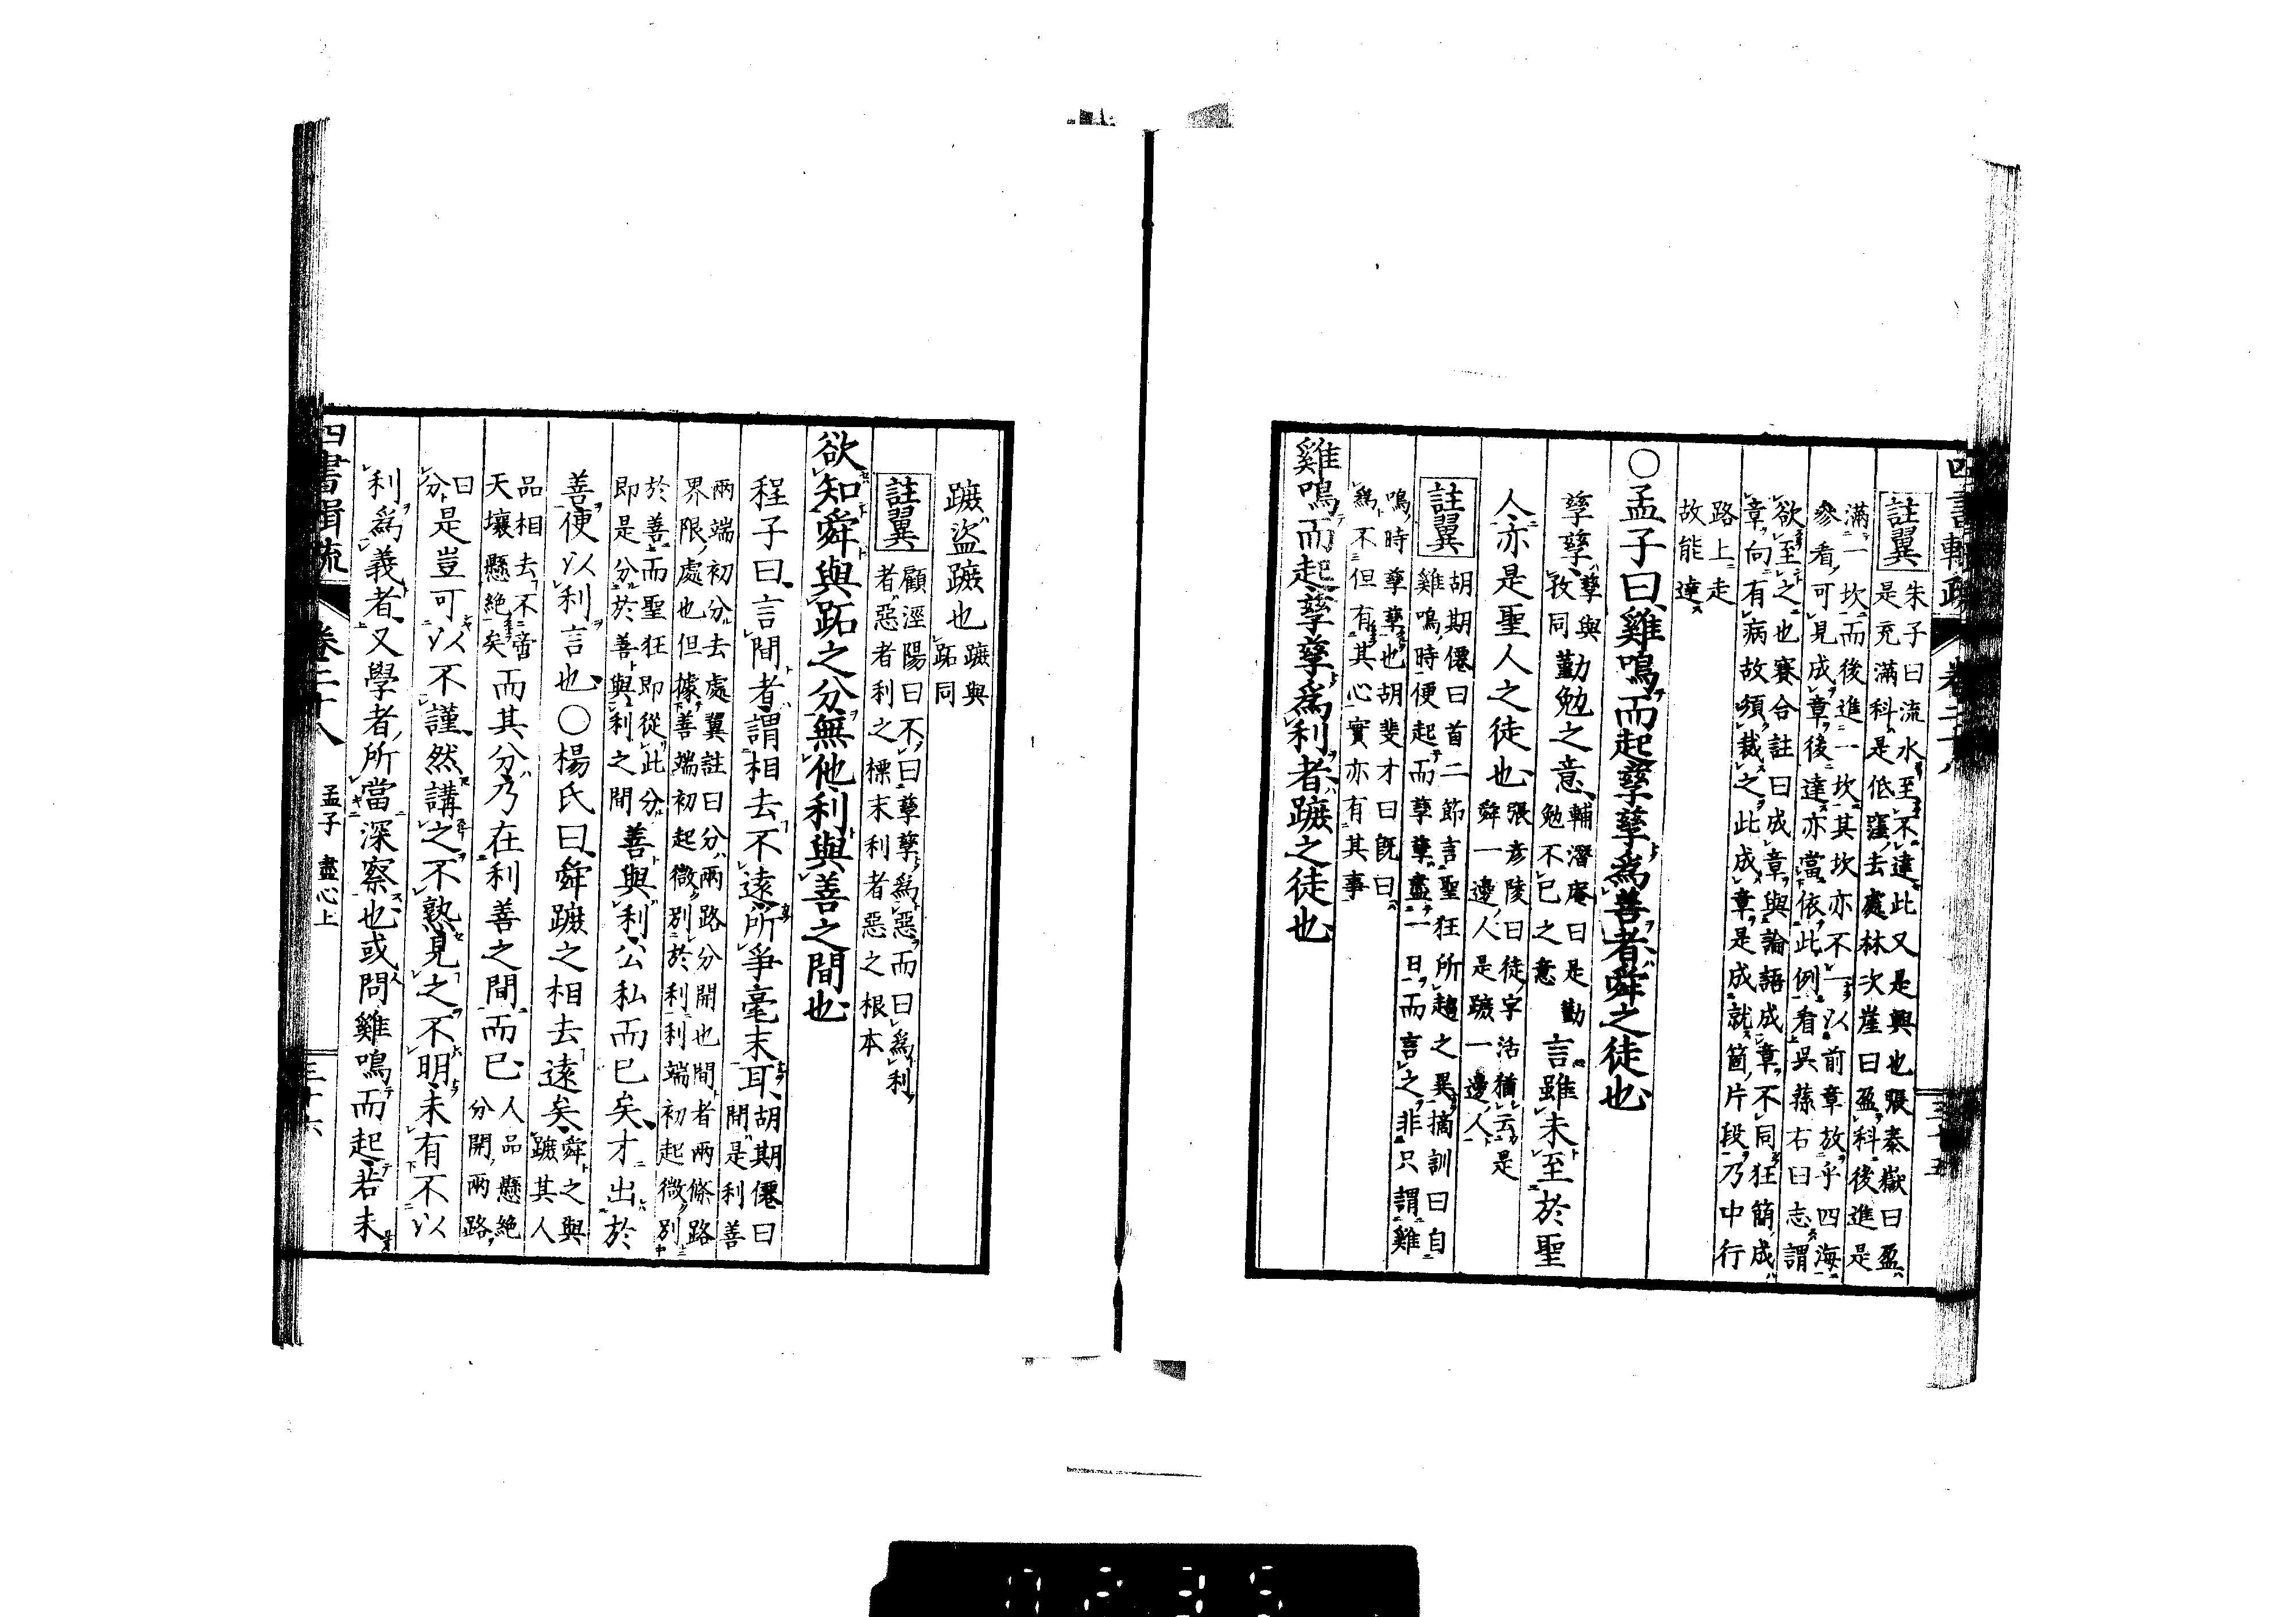 四書輯疏 卷二十八 三十五
註翼 朱子曰流水至不達此又是興也張泰嶽曰盈
是充滿科是低窪去處林次崖曰盈科後進是
滿一坎而後進一坎其坎亦不一以前章放乎四海
參看可見成章後達亦當依此例看吳蓀右曰志謂
欲至之也賽合註曰成章與論語成章不同狂簡成
章向有病故須裁之此成章是成就箇片段乃中行
路上走
故能達
○孟子曰雞鳴而起孳孳爲善者舜之徒也
孳孳孳與
孜同勤勉之意輔潛庵曰是勸
勉不已之意言雖未至於聖
人亦是聖人之徒也張彥陵曰徒字活猶云是
舜一邊人是蹠一邊人
註翼 胡期僊曰首二節言聖狂所趨之異摘訓曰自
雞鳴時便起而孳孳盡一日而言之非只謂雞
鳴時孳孳也胡斐才曰既曰
爲不但有其心實亦有其事
雞鳴而起孳孳爲利者蹠之徒也
蹠盜蹠也蹠與
跖同
註翼 顧涇陽曰不曰孳孳爲惡而曰爲利
者惡者利之標末利者惡之根本
欲知舜與跖之分無他利與善之間也
程子曰言間者謂相去不遠所爭毫末耳胡期僊曰
間是利善
兩端初分去處翼註曰分兩路分開也間者兩條路
界限處也但據善端初起微別於利利端初起微別
於善而聖狂即從此分
即是分於善與利之間善與利公私而已矣才出於
善便以利言也○楊氏曰舜蹠之相去遠矣舜之與
蹠其人
品相去不啻
天壤懸絕矣而其分乃在利善之間而已人品懸絕
分開兩路
曰
分是豈可以不謹然講之不熟見之不明未有不以
利爲義者又學者所當深察也或問雞鳴而起若未
四書輯疏 卷二十八 孟子 盡心上 三十六